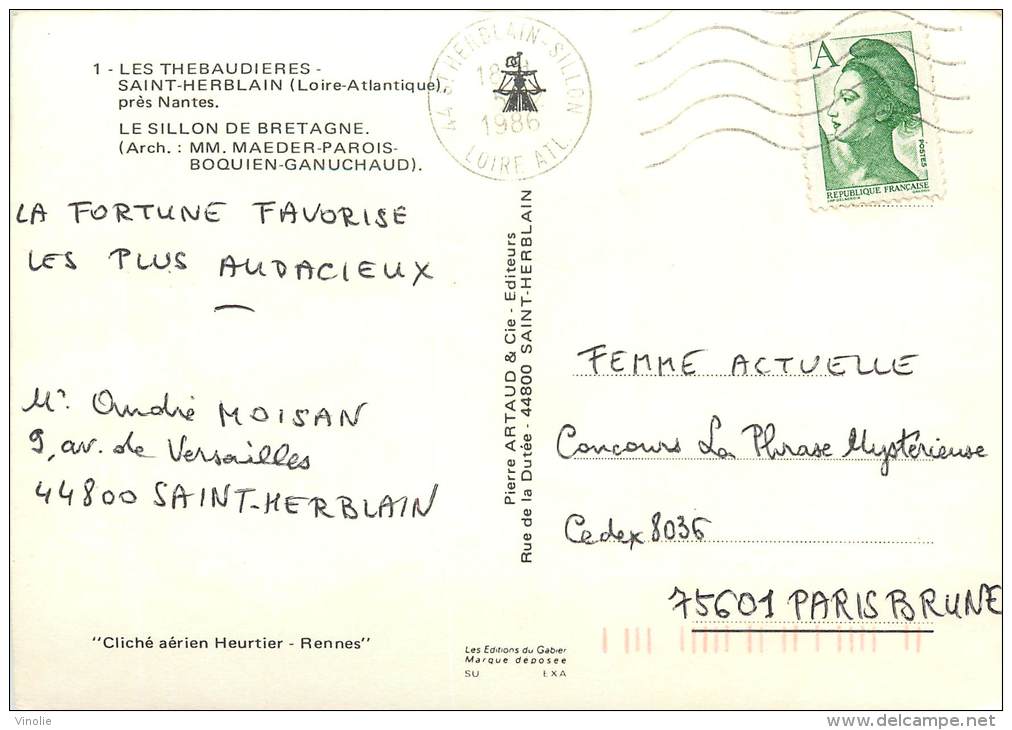 1 - LES THEBAUDIERES -
SAINT-HERBLAIN (Loire-Atlantique),
près Nantes.
LE SILLON DE BRETAGNE.
(Arch. : MM. MAEDER-PAROIS-
BOQUIEN-GANUCHAUD).
LA FORTUNE FAVORISE
LES PLUS AUDACIEUX
Mr. André MOISAN
9, av. de Versailles
44800 SAINT-HERBLAIN
"Cliché aérien Heurtier - Rennes"
Pierre ARTAUD & Cie - Editeurs
Rue de la Dutée - 44800 SAINT-HERBLAIN
Les Editions du Gabier
Marque deposee
SU EXA
44 ST HERBLAIN-SILLON
18
1986
LOIRE ATL.
A
POSTES
REPUBLIQUE FRANÇAISE
FEMME ACTUELLE
Concours La Phrase Mystérieuse
Cedex 8036
75601 PARIS BRUNE
Vinolie
www.delcampe.net